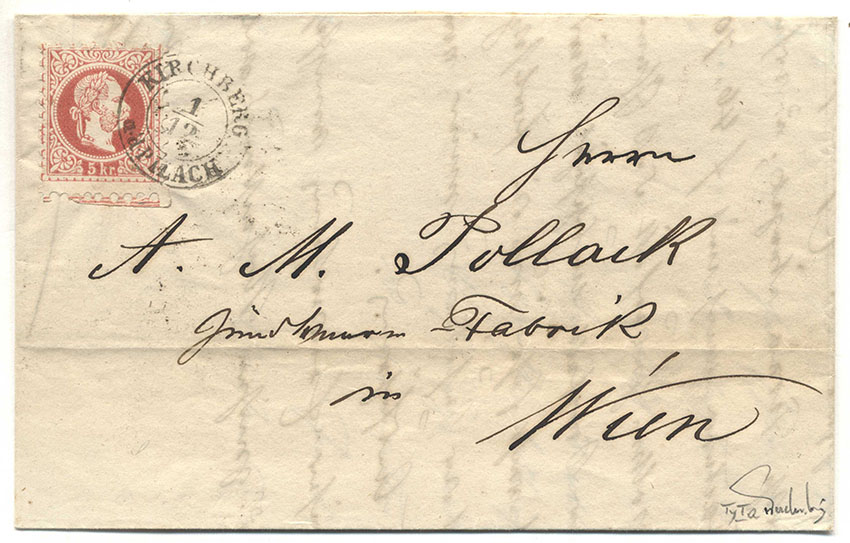 KIRCHBERG
1
12
PLACH
5 kr.
Herrn
A. M. Pollack
Zündwaaren-Fabrik
in
Wien